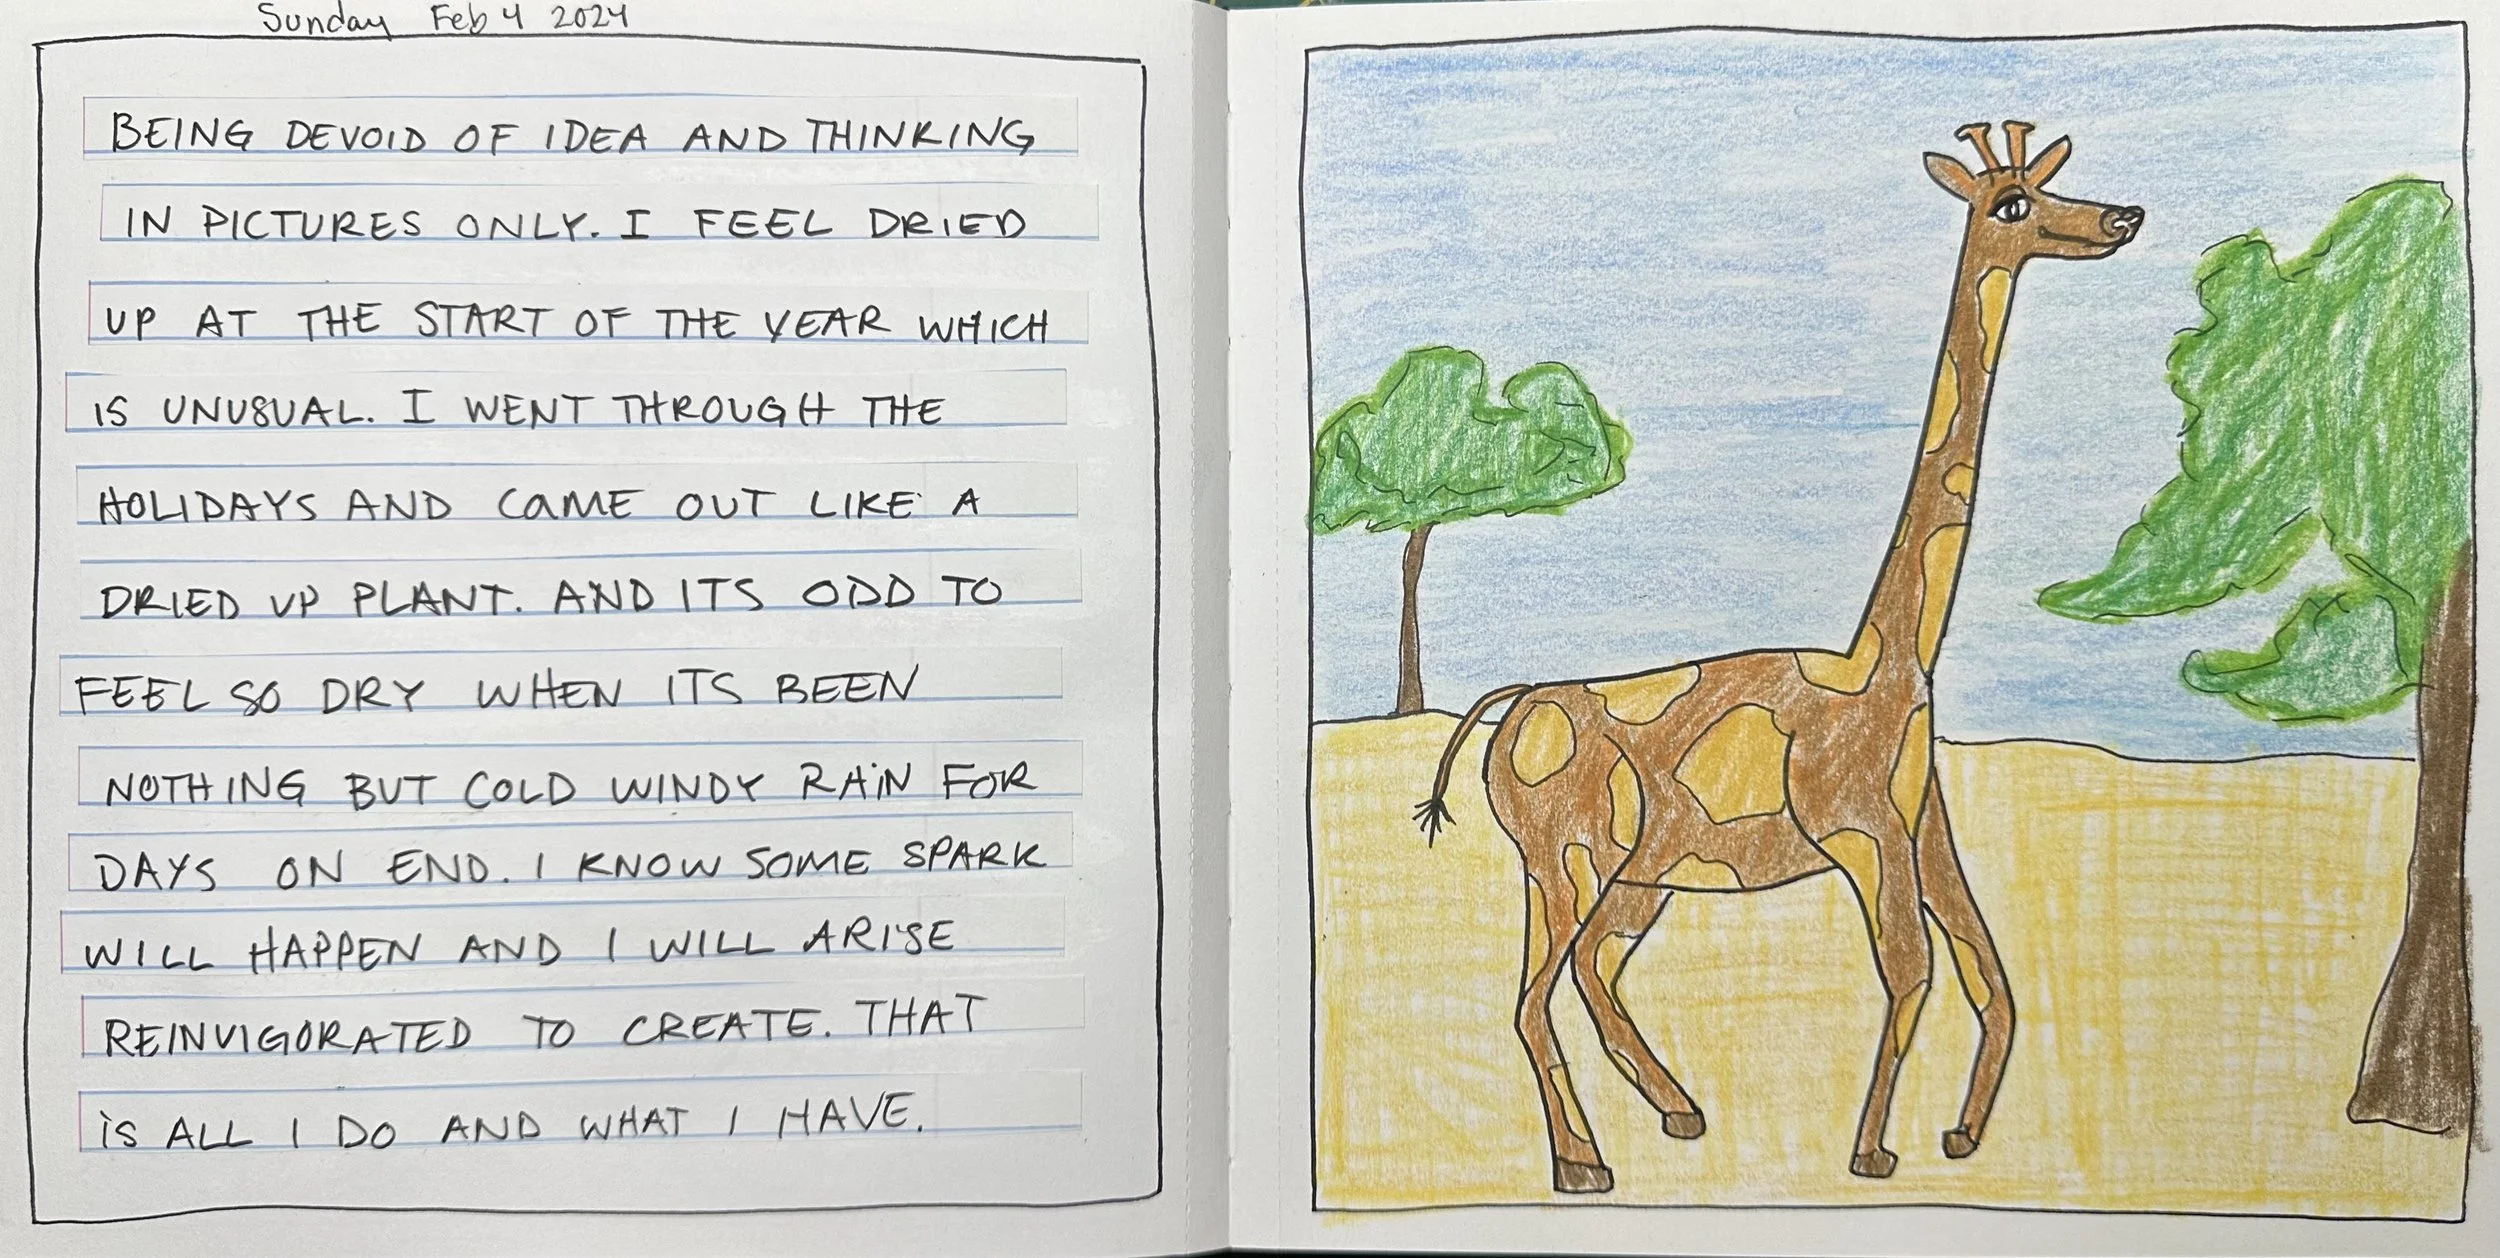 Sunday Feb 4 2024
BEING DEVOID OF IDEA AND THINKING
IN PICTURES ONLY. I FEEL DRIED
UP AT THE START OF THE YEAR WHICH
IS UNUSUAL. I WENT THROUGH THE
HOLIDAYS AND CAME OUT LIKE A
DRIED UP PLANT. AND ITS ODD TO
FEEL SO DRY WHEN ITS BEEN
NOTHING BUT COLD WINDY RAIN FOR
DAYS ON END. I KNOW SOME SPARK
WILL HAPPEN AND I WILL ARISE
REINVIGORATED TO CREATE. THAT
IS ALL I DO AND WHAT I HAVE.